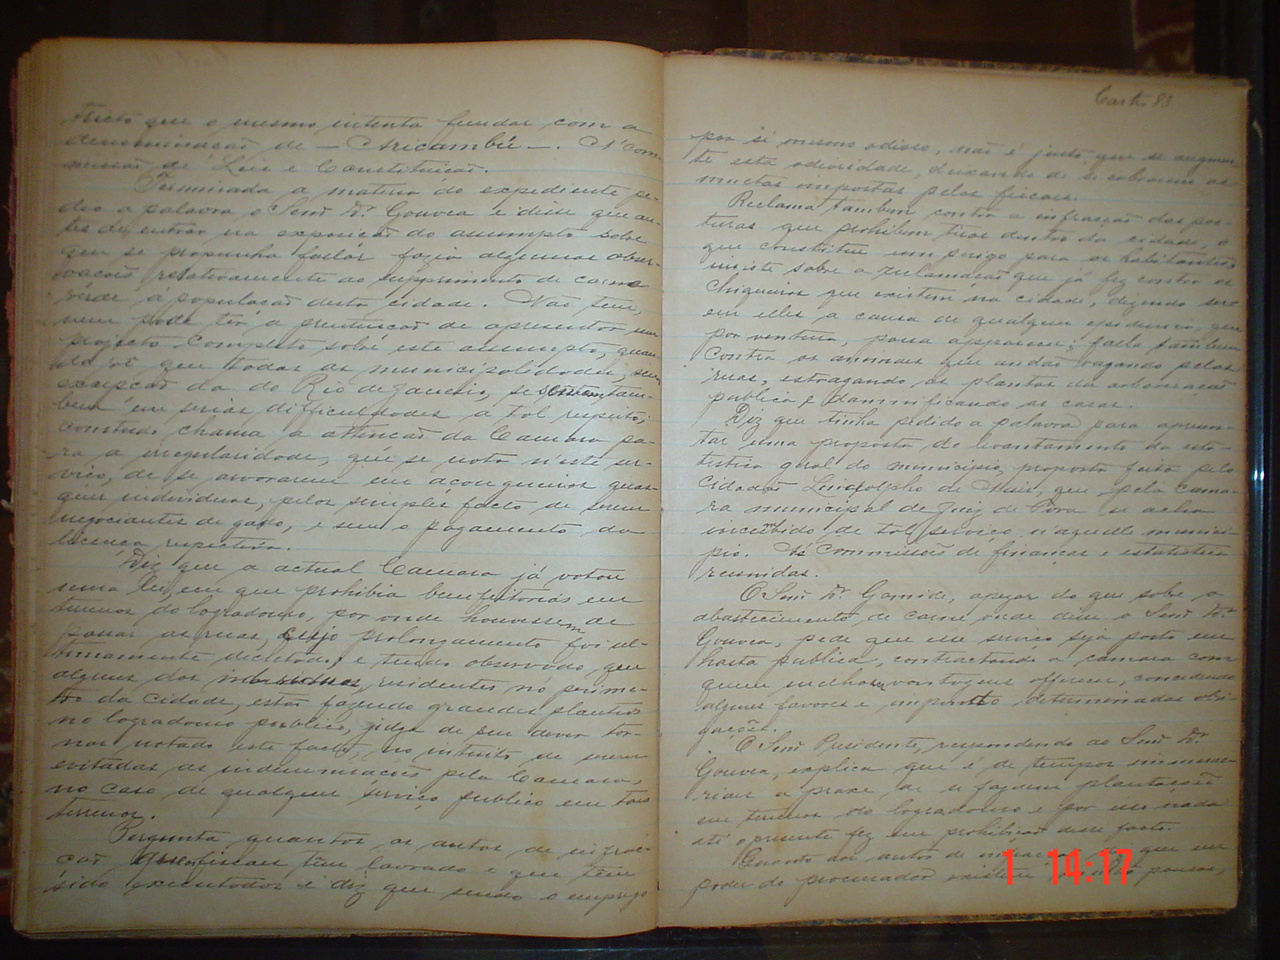 tricto que o mesmo intenta fundar com a
denominação de — Aricambú —. A' Com-
missão de Leis e Constituição.
Terminada a materia do expediente pe-
dio a palavra o Senr Dr. Gouvea e disse que an-
tes de entrar na exposição do assumpto sobre
que se propunha fallar fazia algumas obser-
vações relativamente ao supprimento de carne
verde a população desta cidade. Não tem,
nem pode ter a pretenção de apresentar um
projecto completo sobre este assumpto, quan-
do vê que todas as municipalidades, sem
excepção da do Rio de Janeiro, se sentem tam-
bem em serias difficuldades a tal respeito;
comtudo chama a attenção da Camara pa-
ra a irregularidade, que se nota n'este ser-
viço, de se arvorarem em açougueiros quaes-
quer individuos, pelo simples facto de serem
negociantes de gado, e sem o pagamento da
licença respectiva.
Diz que a actual Camara já votou
uma lei em que prohibia bemfeitorias em
terrenos do logradouro, por onde houvessem de
passar as ruas, cujo prolongamento foi ul-
timamente decretado, e tendo observado que
alguns dos residentes no perime-
tro da cidade, estão fazendo grandes plantios
no logradouro publico, julga de seu dever tor-
nar notado este facto, no intuito de serem
evitadas as indemnisações pela Camara,
no caso de qualquer serviço publico em taes
terrenos.
Pergunta quantos os autos de infrac-
ção fiscaes têm lavrado e que têm
sido executados e diz que sendo o emprego
por si mesmo odioso, não é justo que se augmen-
te esta odiosidade, deixando de se cobrarem as
multas impostas pelos fiscaes.
Reclama tambem contra a infracção das pos-
turas que prohibem tiros dentro da cidade, o
que constitue um perigo para os habitantes;
insiste sobre a reclamação que já fez contra os
chiqueiros que existem na cidade, dizendo ser
em elles a causa de qualquer epidemia, que
por ventura, possa apparecer; falla tambem
contra os animaes que andão vagando pelas
ruas, estragando as plantas da arborisação
publica e damnificando as casas.
Diz que tinha pedido a palavra para apresen-
tar uma proposta de levantamento da esta-
tistica geral do municipio, proposta feita pelo
cidadão Lindolpho de Assis, que pela Cama-
ra municipal de Juiz de Fóra se acha
incumbido de tal serviço n'aquelle munici-
pio. As Commissões de finanças e estatistica
reunidas.
O Senr Dr. Gomide, apezar do que sobre o
abastecimento de carne onde disse o Senr Dr.
Gouvea, pede que esse serviço seja posto em
hasta publica, contractando a camara com
quem melhores vantagens offerecer, concedendo
alguns favores e impondo determinadas obri-
gações.
O Senr Presidente, respondendo ao Senr Dr.
Gouvea, explica que é de tempos immemo-
riaes a praxe de se fazerem plantações
em terrenos do logradouro e por isso nada
até o presente fez em prohibição desse facto.
Quanto aos autos de infracção diz que em
poder do procurador existem poucos,
1 14:17